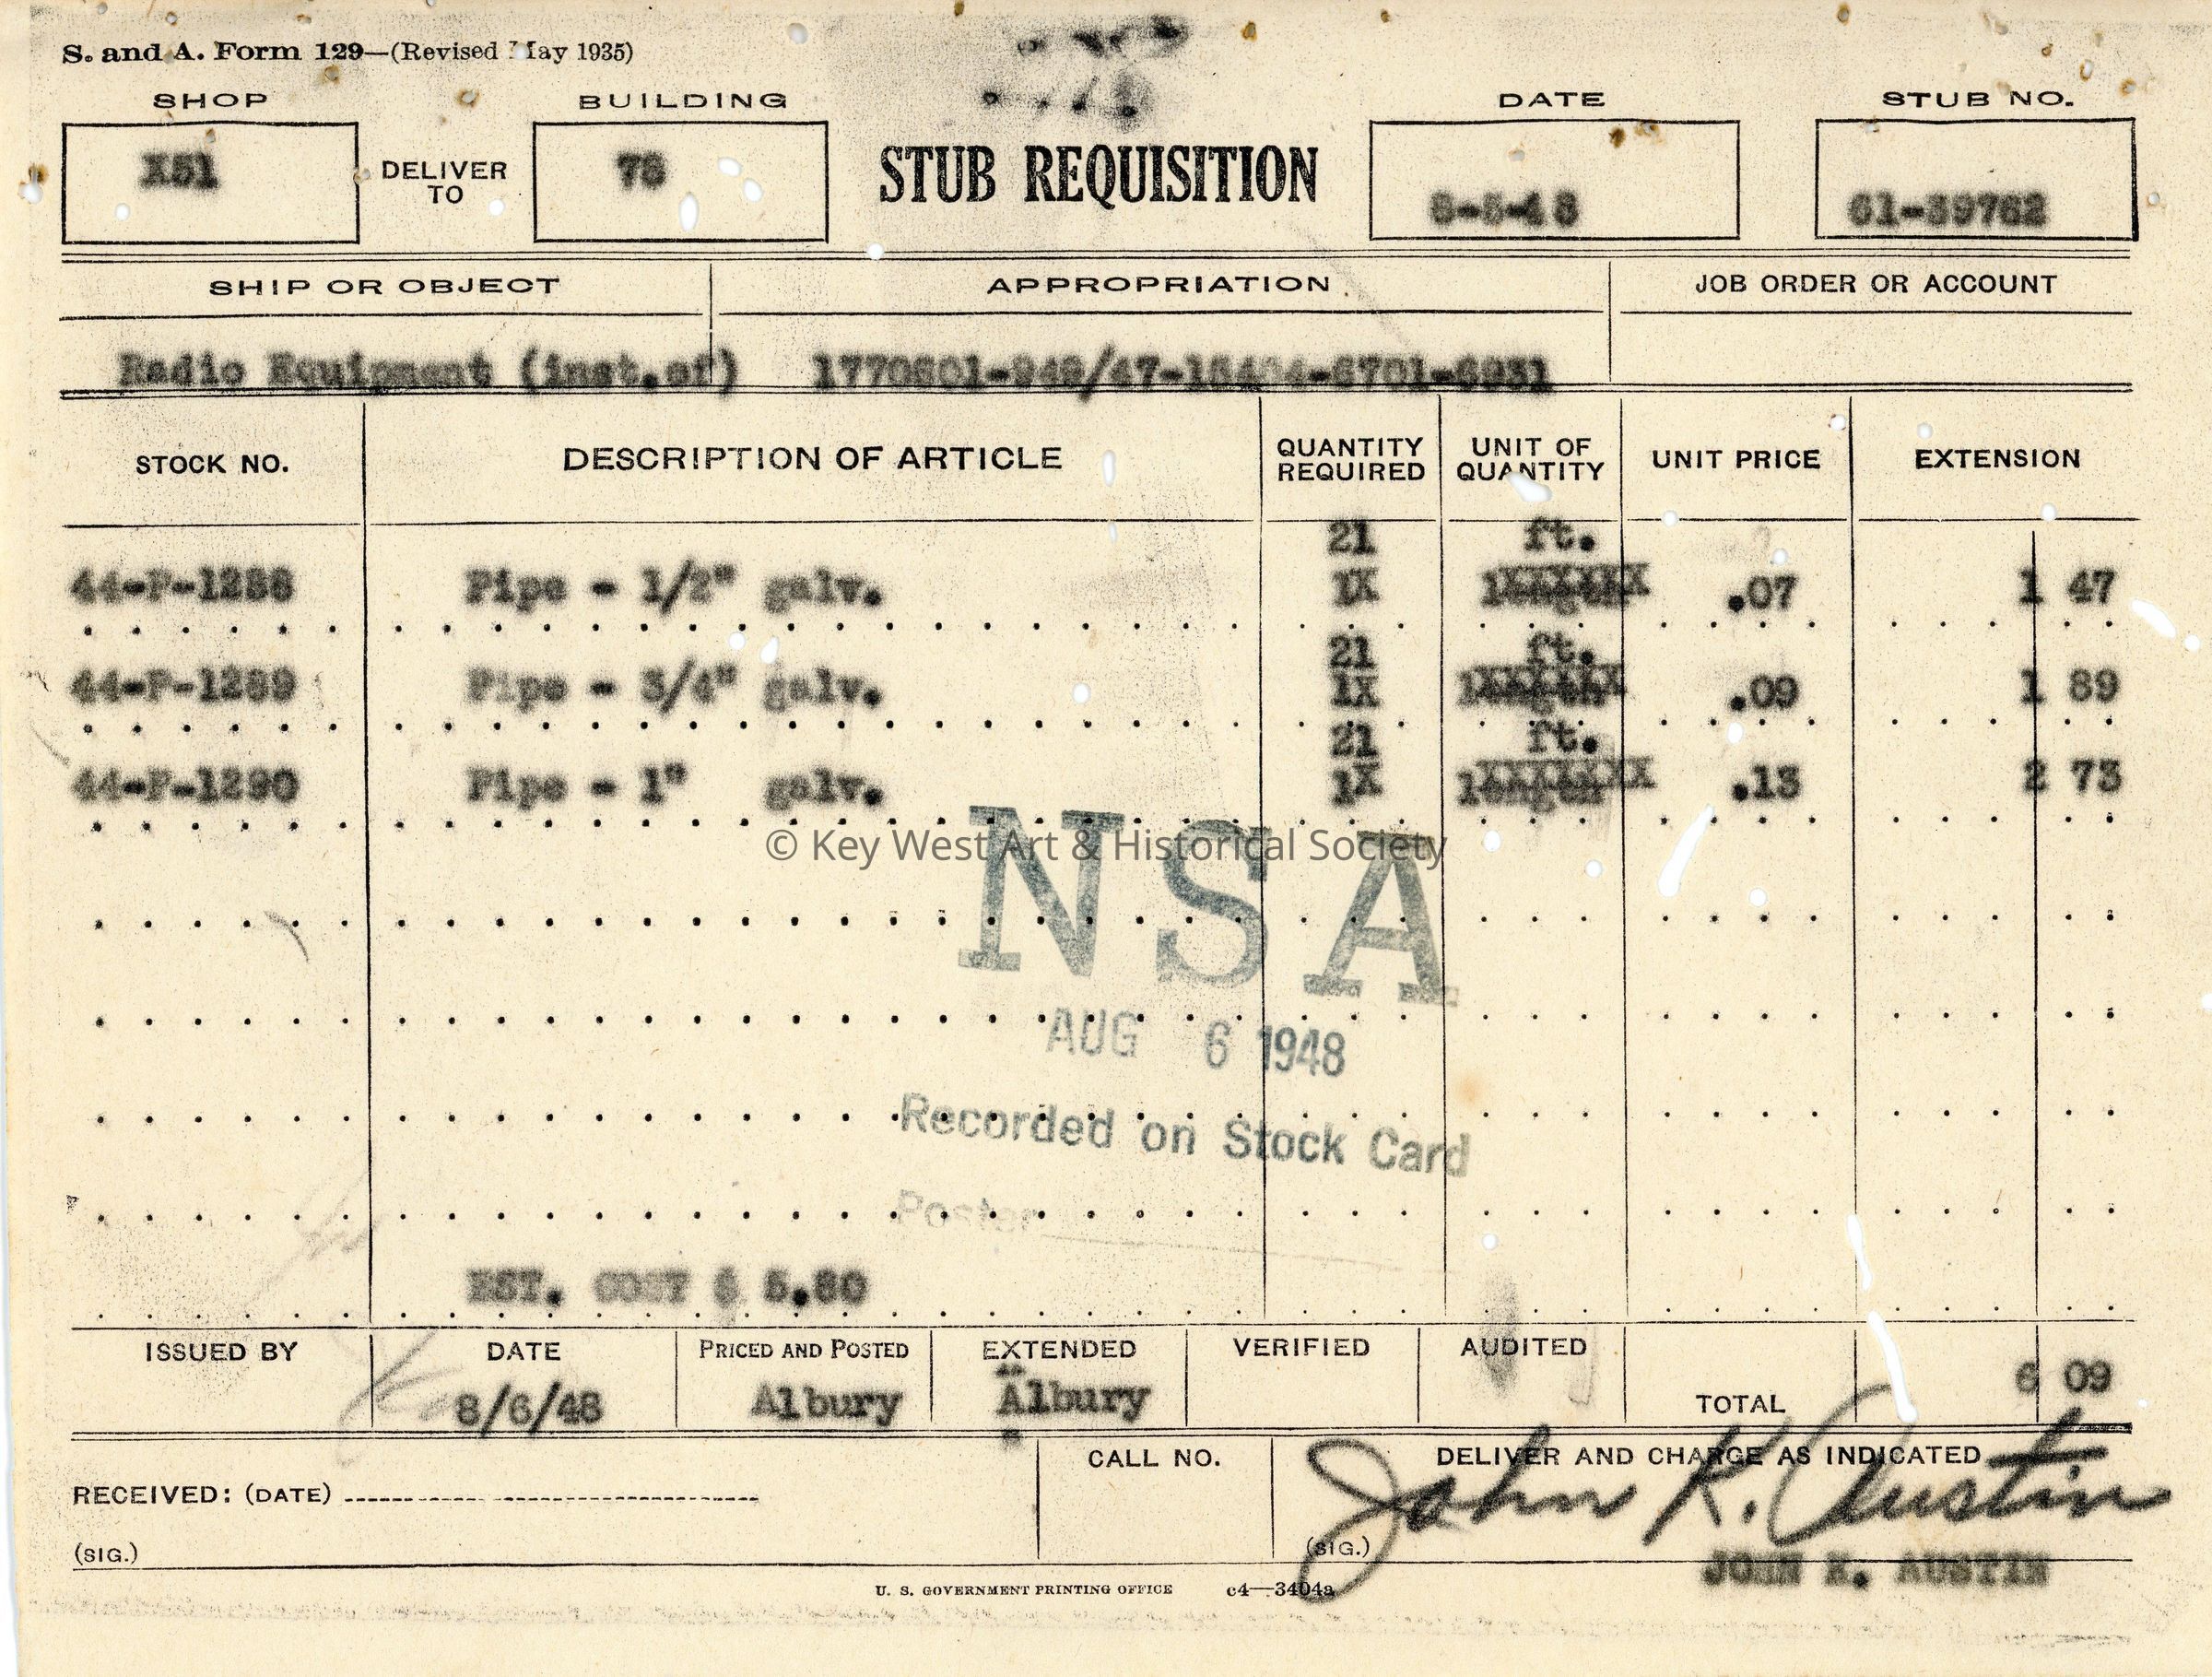 S. and A. Form 129—(Revised May 1935)
SHOP
BUILDING
DATE
STUB NO.
X51
DELIVER TO
78
STUB REQUISITION
8-5-48
61-39762
SHIP OR OBJECT
APPROPRIATION
JOB ORDER OR ACCOUNT
Radio Equipment (inst.of)
STOCK NO.
DESCRIPTION OF ARTICLE
QUANTITY REQUIRED
UNIT OF QUANTITY
UNIT PRICE
EXTENSION
21 ft.
44-P-1288 Pipe - 1/2" galv. 1X .07 1 47
21 ft.
44-P-1289 Pipe - 3/4" galv. 1X .09 1 89
21 ft.
44-P-1290 Pipe - 1" galv. 1X .13 2 73
© Key West Art & Historical Society
NSA
AUG 6 1948
Recorded on Stock Card
Poster
EST. COST $ 5.80
ISSUED BY
DATE
PRICED AND POSTED
EXTENDED
VERIFIED
AUDITED
8/6/48
Albury
Albury
TOTAL
6 09
RECEIVED: (DATE)
CALL NO.
DELIVER AND CHARGE AS INDICATED
John K. Austin
(SIG.)
(SIG.)
JOHN K. AUSTIN
U. S. GOVERNMENT PRINTING OFFICE c4—3404a